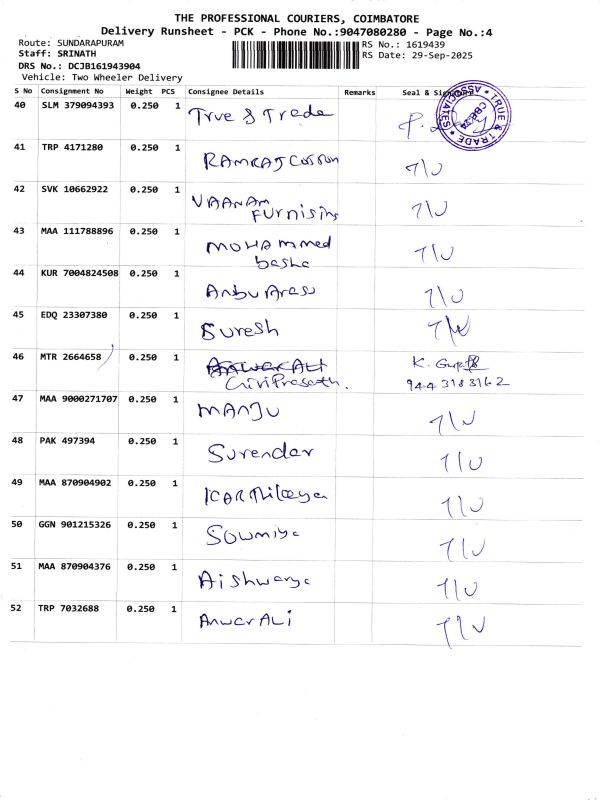 THE PROFESSIONAL COURIERS, COIMBATORE
Delivery Runsheet - PCK - Phone No.:9047080280 - Page No.:4
Route: SUNDARAPURAM
Staff: SRINATH
DRS No.: DCJB161943904
Vehicle: Two Wheeler Delivery
RS No.: 1619439
RS Date: 29-Sep-2025
S No Consignment No Weight PCS Consignee Details Remarks Seal & Signature
40 SLM 379094393 0.250 1 True & Trade
TRUE & TRADE ASSOCIATES CBE-24
41 TRP 4171280 0.250 1 RAMRAJ Cotton T/U
42 SVK 10662922 0.250 1 VAANAM T/U
FURNISINg
43 MAA 111788896 0.250 1 MOHAmmed T/U
basha
44 KUR 7004824508 0.250 1 Anbu Arasu T/U
45 EDQ 23307380 0.250 1 Suresh T/U
46 MTR 2664658 0.250 1 Anwar Ali K. Gupta
GiriPrasath. 944 3183162
47 MAA 9000271707 0.250 1 MANJU T/U
48 PAK 497394 0.250 1 Surendar T/U
49 MAA 870904902 0.250 1 KARThikeyan T/U
50 GGN 901215326 0.250 1 Soumiya T/U
51 MAA 870904376 0.250 1 Aishwarya T/U
52 TRP 7032688 0.250 1 Anwar ALi T/U